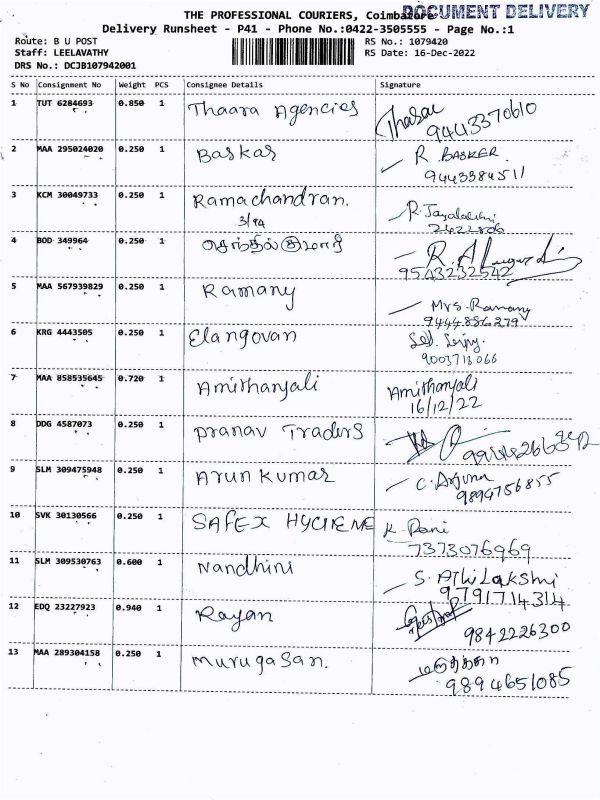 DOCUMENT DELIVERY
THE PROFESSIONAL COURIERS, Coimbatore
Delivery Runsheet - P41 - Phone No.:0422-3505555 - Page No.:1
Route: B U POST
RS No.: 1079420
Staff: LEELAVATHY
RS Date: 16-Dec-2022
DRS No.: DCJB107942001
S No Consignment No Weight PCS Consignee Details Signature
1 TUT 6284693 0.850 1 Thaara Agencies
9443370610
2 MAA 295024020 0.250 1 Baskar R BASKER.
9443384511
3 KCM 30049733 0.250 1 Ramachandran. R. Jayalakshmi
3/94 2422806
4 BOD 349964 0.250 1 செந்தில்குமார்
9543232542
5 MAA 567939829 0.250 1 Ramany Mrs. Ramany
9444886279
6 KRG 4443505 0.250 1 Elangovan
9003713066
7 MAA 858535645 0.720 1 Amithanjali Amithanjali
16/12/22
8 DDG 4587073 0.250 1 Pranav Traders
9 SLM 309475948 0.250 1 Arun Kumar C. Arjuna
9894756855
10 SVK 30130566 0.250 1 SAFEX HYGIENE K Rani
7373076969
11 SLM 309530763 0.600 1 Nandhini S. AthiLakshmi
9791714314
12 EDQ 23227923 0.940 1 Rayan
9842226300
13 MAA 289304158 0.250 1 Murugasan.
9894651085